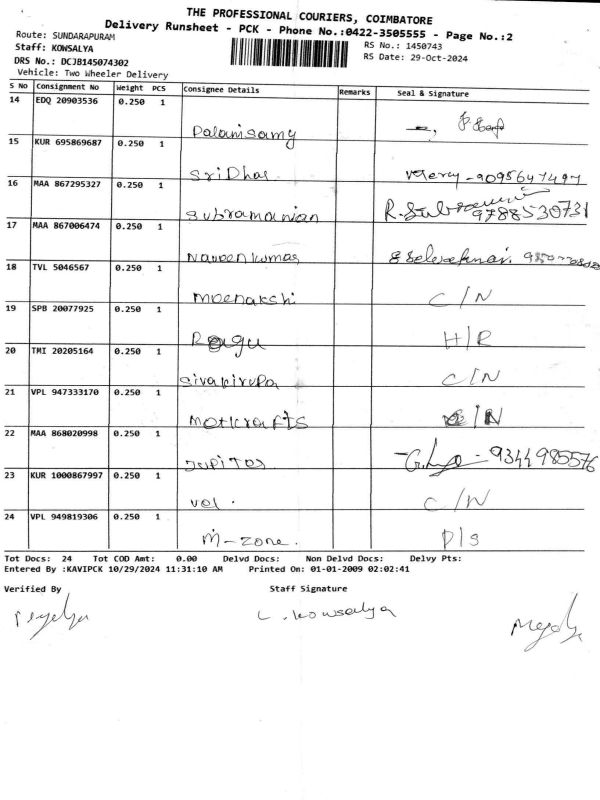 THE PROFESSIONAL COURIERS, COIMBATORE
Delivery Runsheet - PCK - Phone No.:0422-3505555 - Page No.:2
Route: SUNDARAPURAM
RS No.: 1450743
Staff: KOWSALYA
RS Date: 29-Oct-2024
DRS No.: DCJB145074302
Vehicle: Two Wheeler Delivery
S No Consignment No Weight PCS Consignee Details Remarks Seal & Signature
14 EDQ 20903536 0.250 1
Palanisamy
15 KUR 695869687 0.250 1
SriDhar - 9095647497
16 MAA 867295327 0.250 1
Subramanian R. 9788530731
17 MAA 867006474 0.250 1
Naveenkumar
18 TVL 5046567 0.250 1
Meenakshi C/N
19 SPB 20077925 0.250 1
Ragu H/R
20 TMI 20205164 0.250 1
Sivakirupa C/N
21 VPL 947333170 0.250 1
/N
22 MAA 868020998 0.250 1
Jupiter - 9344985576
23 KUR 1000867997 0.250 1
vol. C/N
24 VPL 949819306 0.250 1
M-zone. D/S
Tot Docs: 24 Tot COD Amt: 0.00 Delvd Docs: Non Delvd Docs: Delvy Pts:
Entered By :KAVIPCK 10/29/2024 11:31:10 AM Printed On: 01-01-2009 02:02:41
Verified By Staff Signature
L. Kowsalya